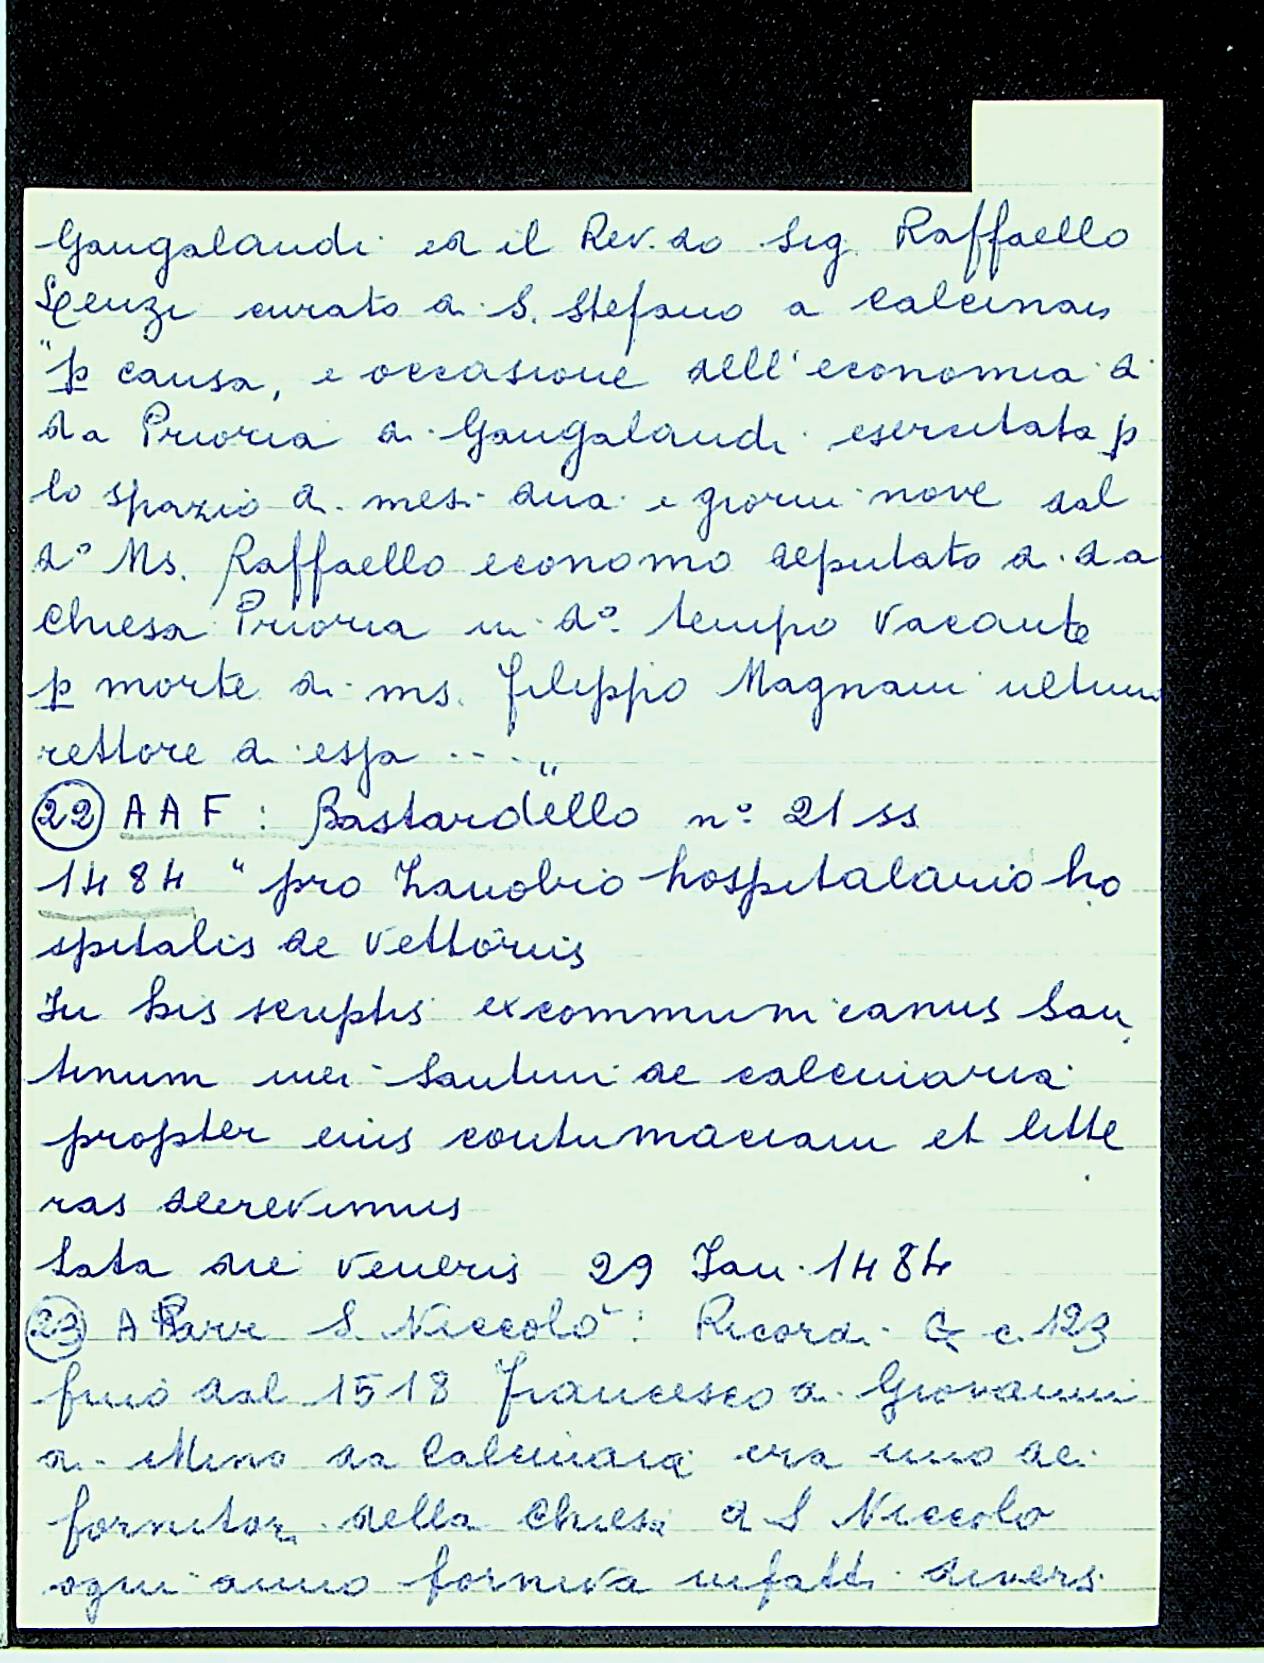 Gangalandi ed il Rev.do Sig. Raffaello
Lenzi curato di S. Stefano a Calcinaia
"p causa, e occasione dell'economia di
da Prioria di Gangalandi esercitata p
lo spazio di mesi dua e giorni nove dal
d° Ms. Raffaello economo deputato di da
Chiesa Prioria in d° tempo vacante
p morte di ms. Filippo Magnani ultimo
rettore di essa ...."
22 A A F : Bastardello n° 21 ss
1484 "pro Zanobio hospitalario ho
spitalis de Vettoriis
In his scriptis excommunicamus San
tinum mei Santini de Calcinaria
propter eius contumaciam et litte
ras decrevimus
Lata die Veneris 29 Jan. 1484
23 A Parr S. Niccolò : Ricordi G c. 123
fino dal 1518 Francesco di Giovanni
di Mino da Calcinaia era uno dei
fornitori della Chiesa di S Niccolò
ogni anno forniva infatti diversi